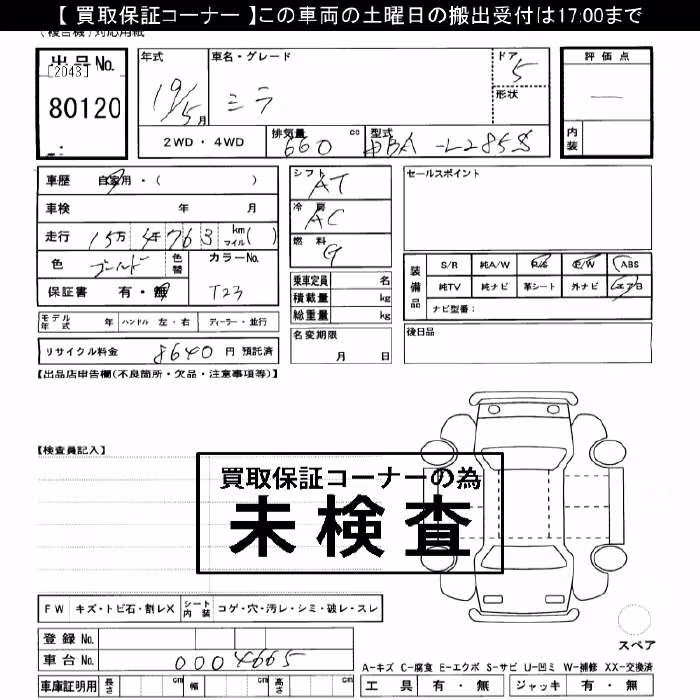 【 買取保証コーナー 】この車両の土曜日の搬出受付は17:00まで
出品No.
[2043]
80120
年式
19/5月
車名・グレード
ミラ
ドア
5
形状
評価点
内装
2WD・4WD
排気量
660 cc
型式
DBA-L285S
車歴 自家用・( )
車検 年 月
走行 15万4千763 km マイル( )
色 ゴールド
色替
カラーNo.
T23
保証書 有・無
モデル年式 年 ハンドル 左・右 ディーラー・並行
リサイクル料金 8640 円 預託済
シフト AT
冷房 AC
燃料 G
乗車定員 名
積載量 kg
総重量 kg
名変期限
月 日
セールスポイント
装備品
S/R 純A/W P/S P/W ABS
純TV 純ナビ 革シート 外ナビ エアB
ナビ型番:
後日品
【出品店申告欄(不良箇所・欠品・注意事項等)】
【検査員記入】
買取保証コーナーの為
未検査
FW キズ・トビ石・割レX シート内装 コゲ・穴・汚レ・シミ・破レ・スレ
登録No.
車台No. 0004665
車庫証明用 長さ cm 幅 cm 高さ cm
スペア
A-キズ C-腐食 E-エクボ S-サビ U-凹ミ W-補修 XX-交換済
工具 有・無 ジャッキ 有・無